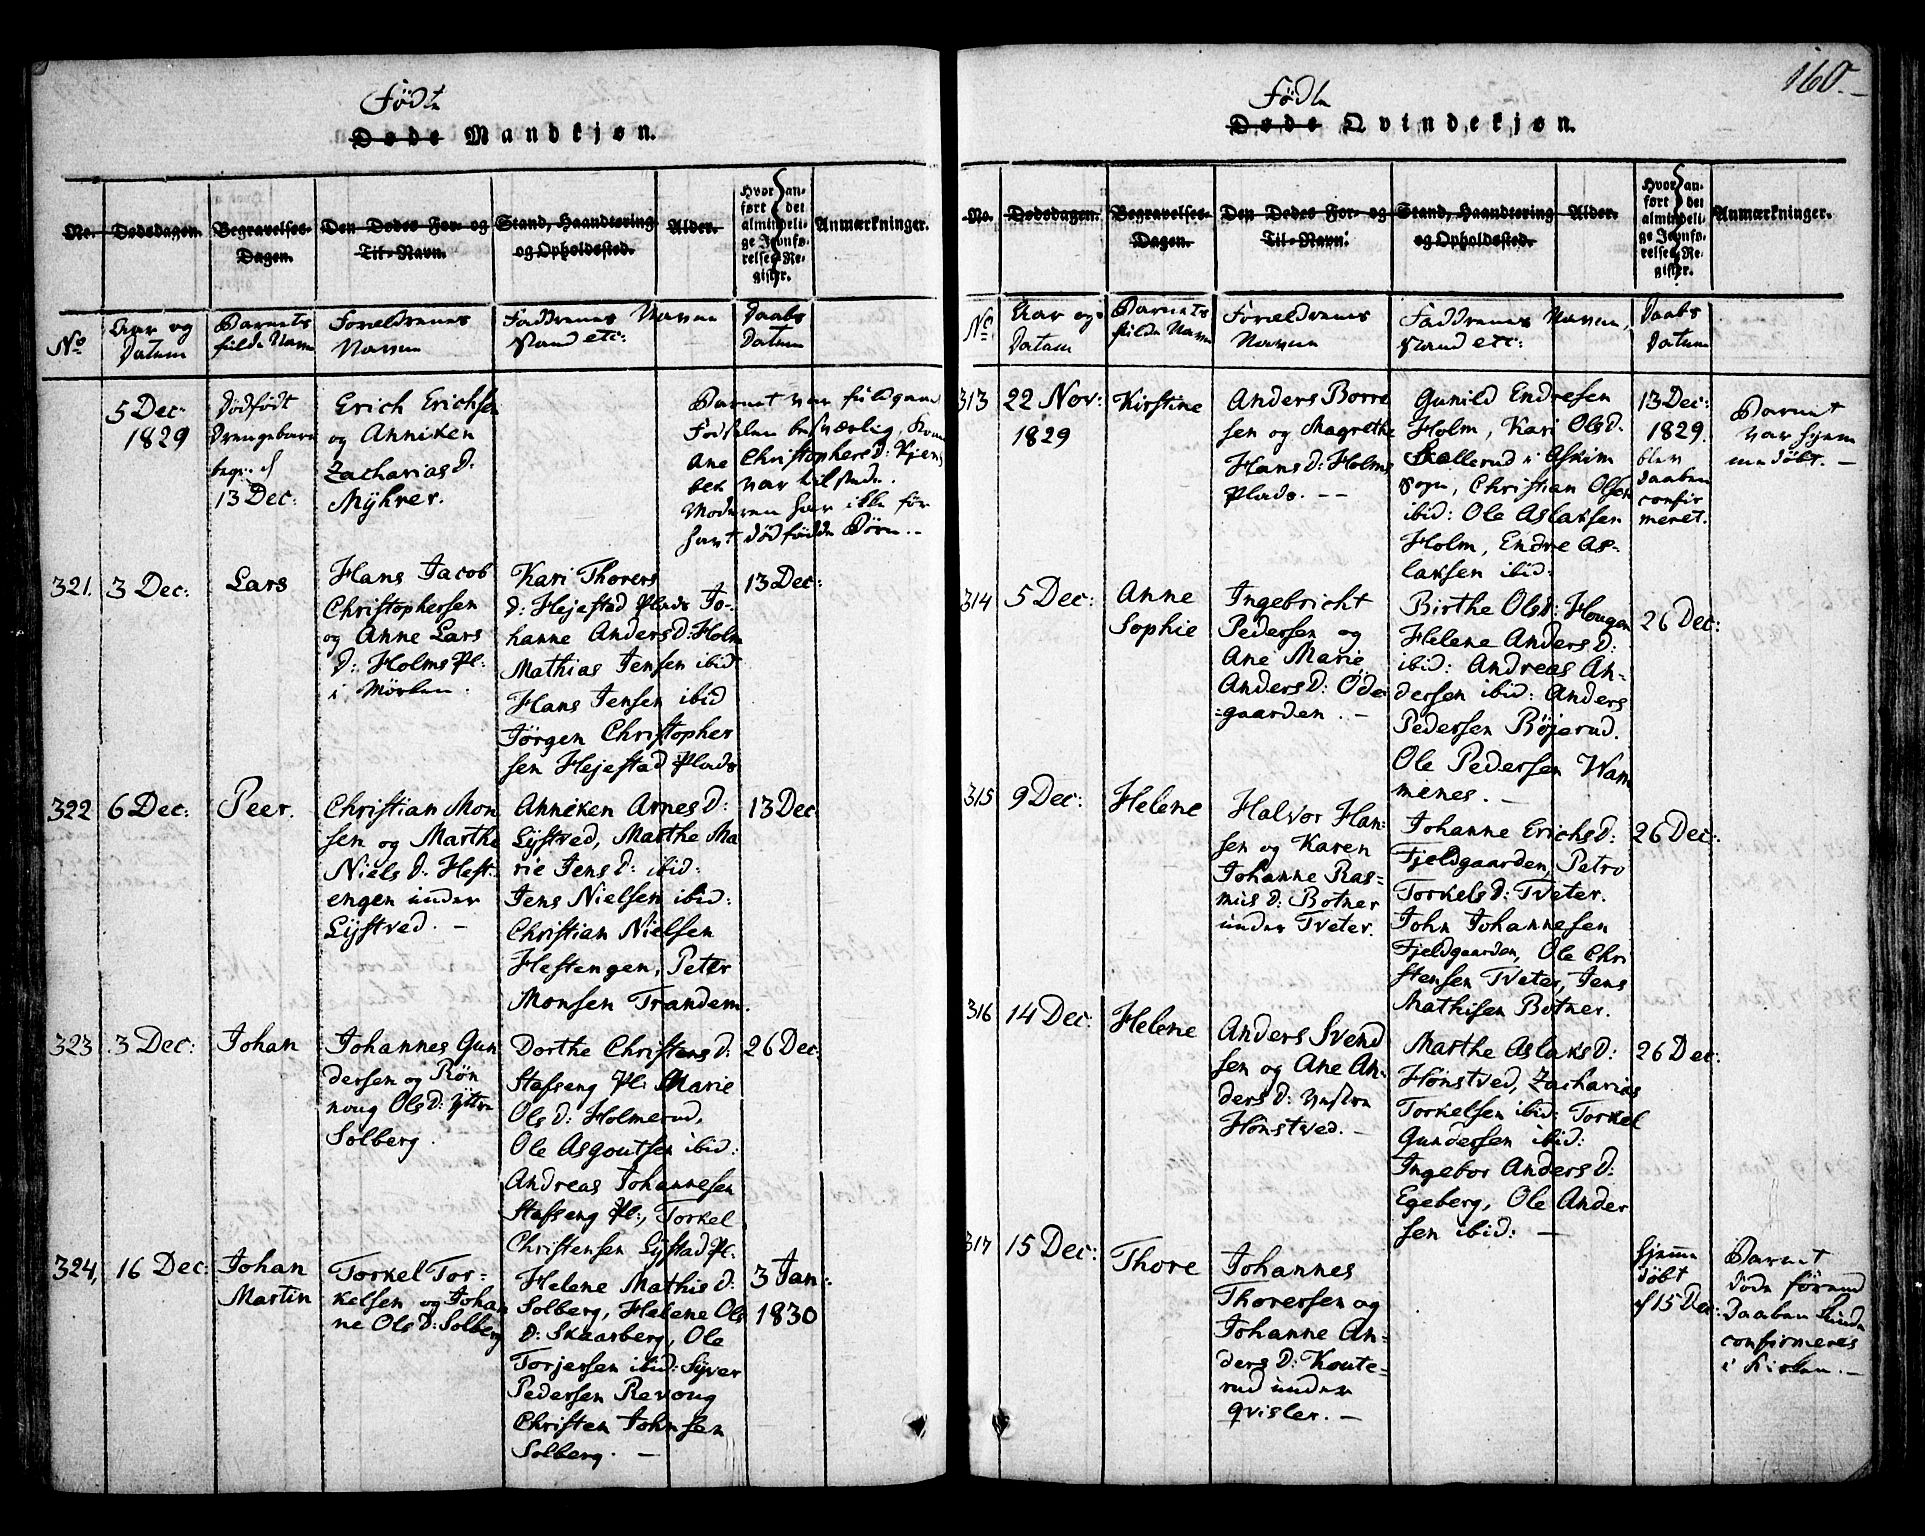 160.
Födte
Døde Mandkjøn.
No. Dødsdagen. Begravelses-Dagen. Den Dødes For- og Til-Navn. Stand, Haandtering og Opholdssted. Alder. Hvor anført i det almindelige Jevnførelses-Register. Anmærkninger.
No
Aar og
Datum
Barnets
fulde Navn
Forældrenes
Navne
Faddernes Navne
Stand etc:
Daabs
Datum
5 Dec:
1829
Dødfödt
Drengebarn
begr: d
13 Dec:
Erich Erichsen
og Anniken
Zacharias D:
Mÿhrer.
Barnet var fuldgaaet
Fødselen besværlig,
Ane Christophers D:
var tilstede.
Moderen har ikke før
havt dödfödde Börn.
321.
3 Dec:
Lars
Hans Jacob
Christophersen
og Anne Lars
D: Holms Pl:
i Mörken.
Kari Thorers
D: Hejestad Plads Jo-
hanne Anders D: Holm
Mathias Jensen ibid
Hans Jensen ibid
Jörgen Christopher
sen Hejestad Plads
13 Dec:
322
6 Dec:
Peer.
Christian Mon
sen og Marthe
Niels D: Hest-
engen under
Lÿstved. -
Anniken Arnes D:
Lÿstved, Marthe Ma
rie Jens D: ibid:
Jens Nielsen ibid:
Christian Nielsen
Hestengen, Peter
Monsen Trandem.
13 Dec
323
3 Dec:
Johan
Johannes Gun
dersen og Rön
noug Ols D: Ÿttre
Solberg.
Dorthe Christens D:
Stafseng Pl: Marie
Ols D: Holmerud,
Ole Asgoutsen ibid:
Andreas Johannesen
Stafseng Pl:, Torkel
Christensen Lÿstad Pl:
26 Dec:
324,
16 Dec:
Johan
Martin
Torkel Tor-
kelsen og Johan
ne Ols D: Solberg
Helene Mathis D:
Solberg, Helene Ols
D: Skaarberg, Ole
Torjersen ibid: Syver
Pedersen Revoug
Christen Johnsen
Solberg. -
3 Jan:
1830
Födte
Døde Qvindekjøn.
No. Dødsdagen. Begravelses-Dagen. Den Dødes For- og Til-Navn. Stand, Haandtering og Opholdssted. Alder. Hvor anført i det almindelige Jevnførelses-Register. Anmærkninger.
No
Aar og
Datum
Barnets
fulde Navn
Forældrenes
Navne
Faddernes Navne,
Stand etc:
Daabs
Datum
313
22 Nov:
1829
Kirstine
Anders Borre
sen og Magrethe
Hans D: Holms
Plads. --
Gunild Endresen
Holm, Kari Ols D:
Skallerud i Askim
Sogn, Christian Olsen
ibid: Ole Aslaksen
Holm, Endre As-
laksen ibid:
13 Dec:
1829.
blev
Daaben
confir
meret.
Barnet
var hjem
medöbt. -
314
5 Dec:
Anne
Sophie
Ingebricht
Pedersen og
Ane Marie
Anders D: Öde-
gaarden. -
Birthe Ols D: Hougen
Helene Anders D:
ibid: Andreas An-
dersen ibid: Anders
Pedersen Böjerud.
Ole Pedersen Wam
menes. -
26 Dec:
315
9 Dec:
Helene
Halvor Han-
sen og Karen
Johanne Ras-
mus D: Botner
under Tveter.
Johanne Erichs D:
Fjeldgaarden, Petro
Torkels D: Tveter.
John Johannesen
Fjeldgaarden, Ole Chri
stensen Tveter, Jens
Mathisen Botner.
26 Dec:
316
14 Dec:
Helene
Anders Svend
sen og Ane An-
ders D: Vestre
Hönstved. -
Marthe Aslaks D:
Hönstved, Zacharias
Torkelsen ibid: Torkel
Gundersen ibid:
Ingebor Anders D:
Egeberg, Ole Ander
sen ibid: -
26 Dec:
317
15 Dec:
Thore
Johannes
Thorersen og
Johanne An-
ders D: Koute-
rud under
Qvisler. -
hjemme
döbt
d 15 Dec:
Barnet
döde förend
Daaben kunde
confirmeres
i Kirken. -